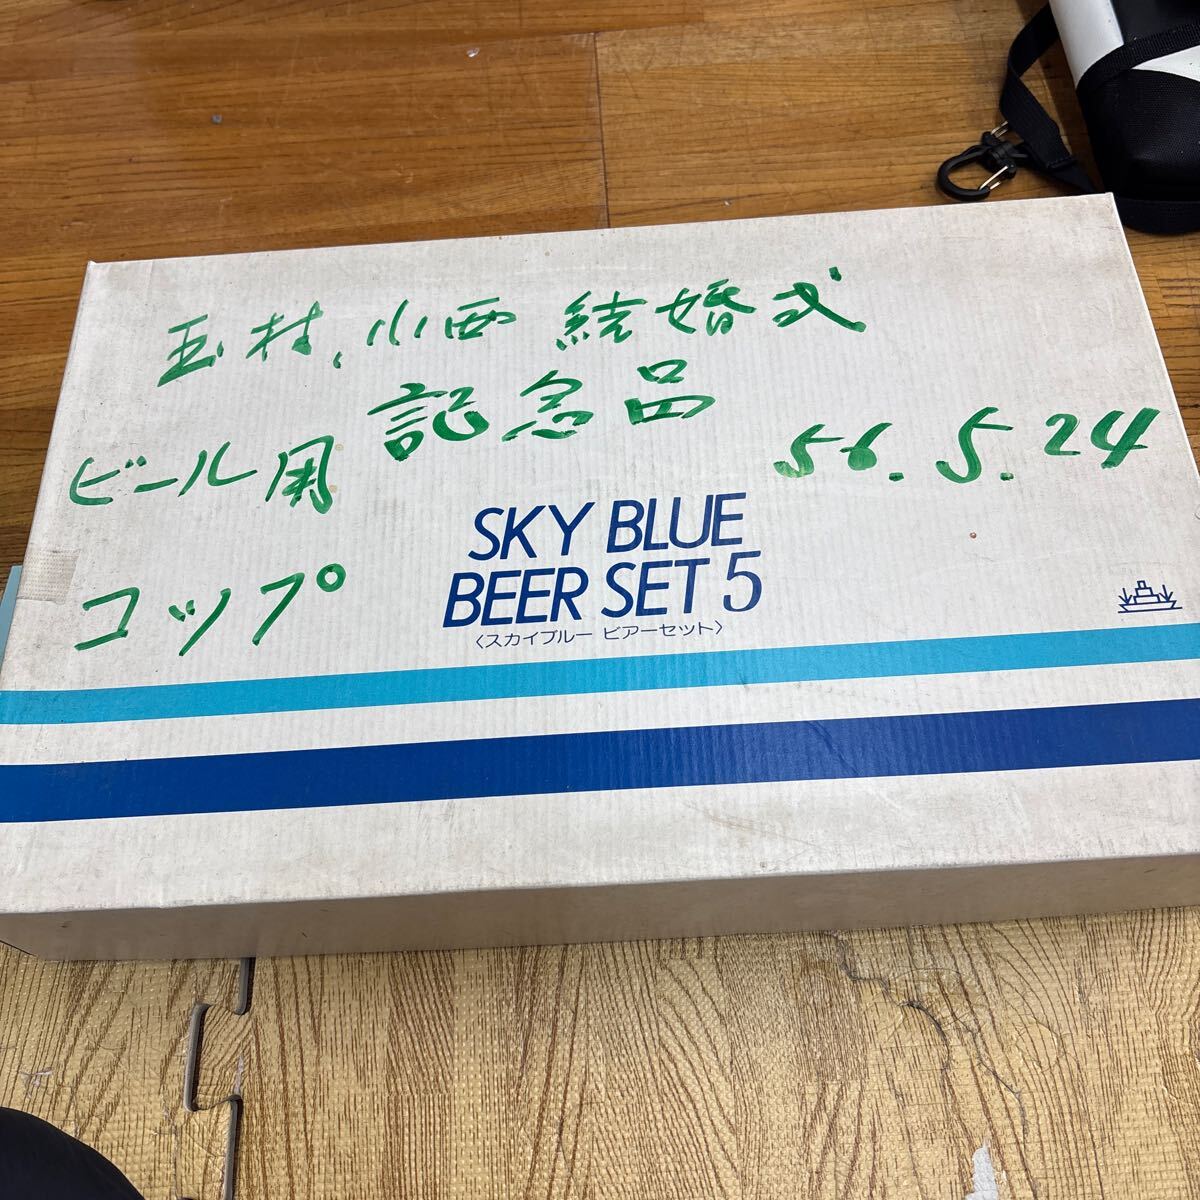 玉村、小西 結婚式
記念品
56.5.24
ビール用
コップ
SKY BLUE
BEER SET 5
〈スカイブルー ビアーセット〉